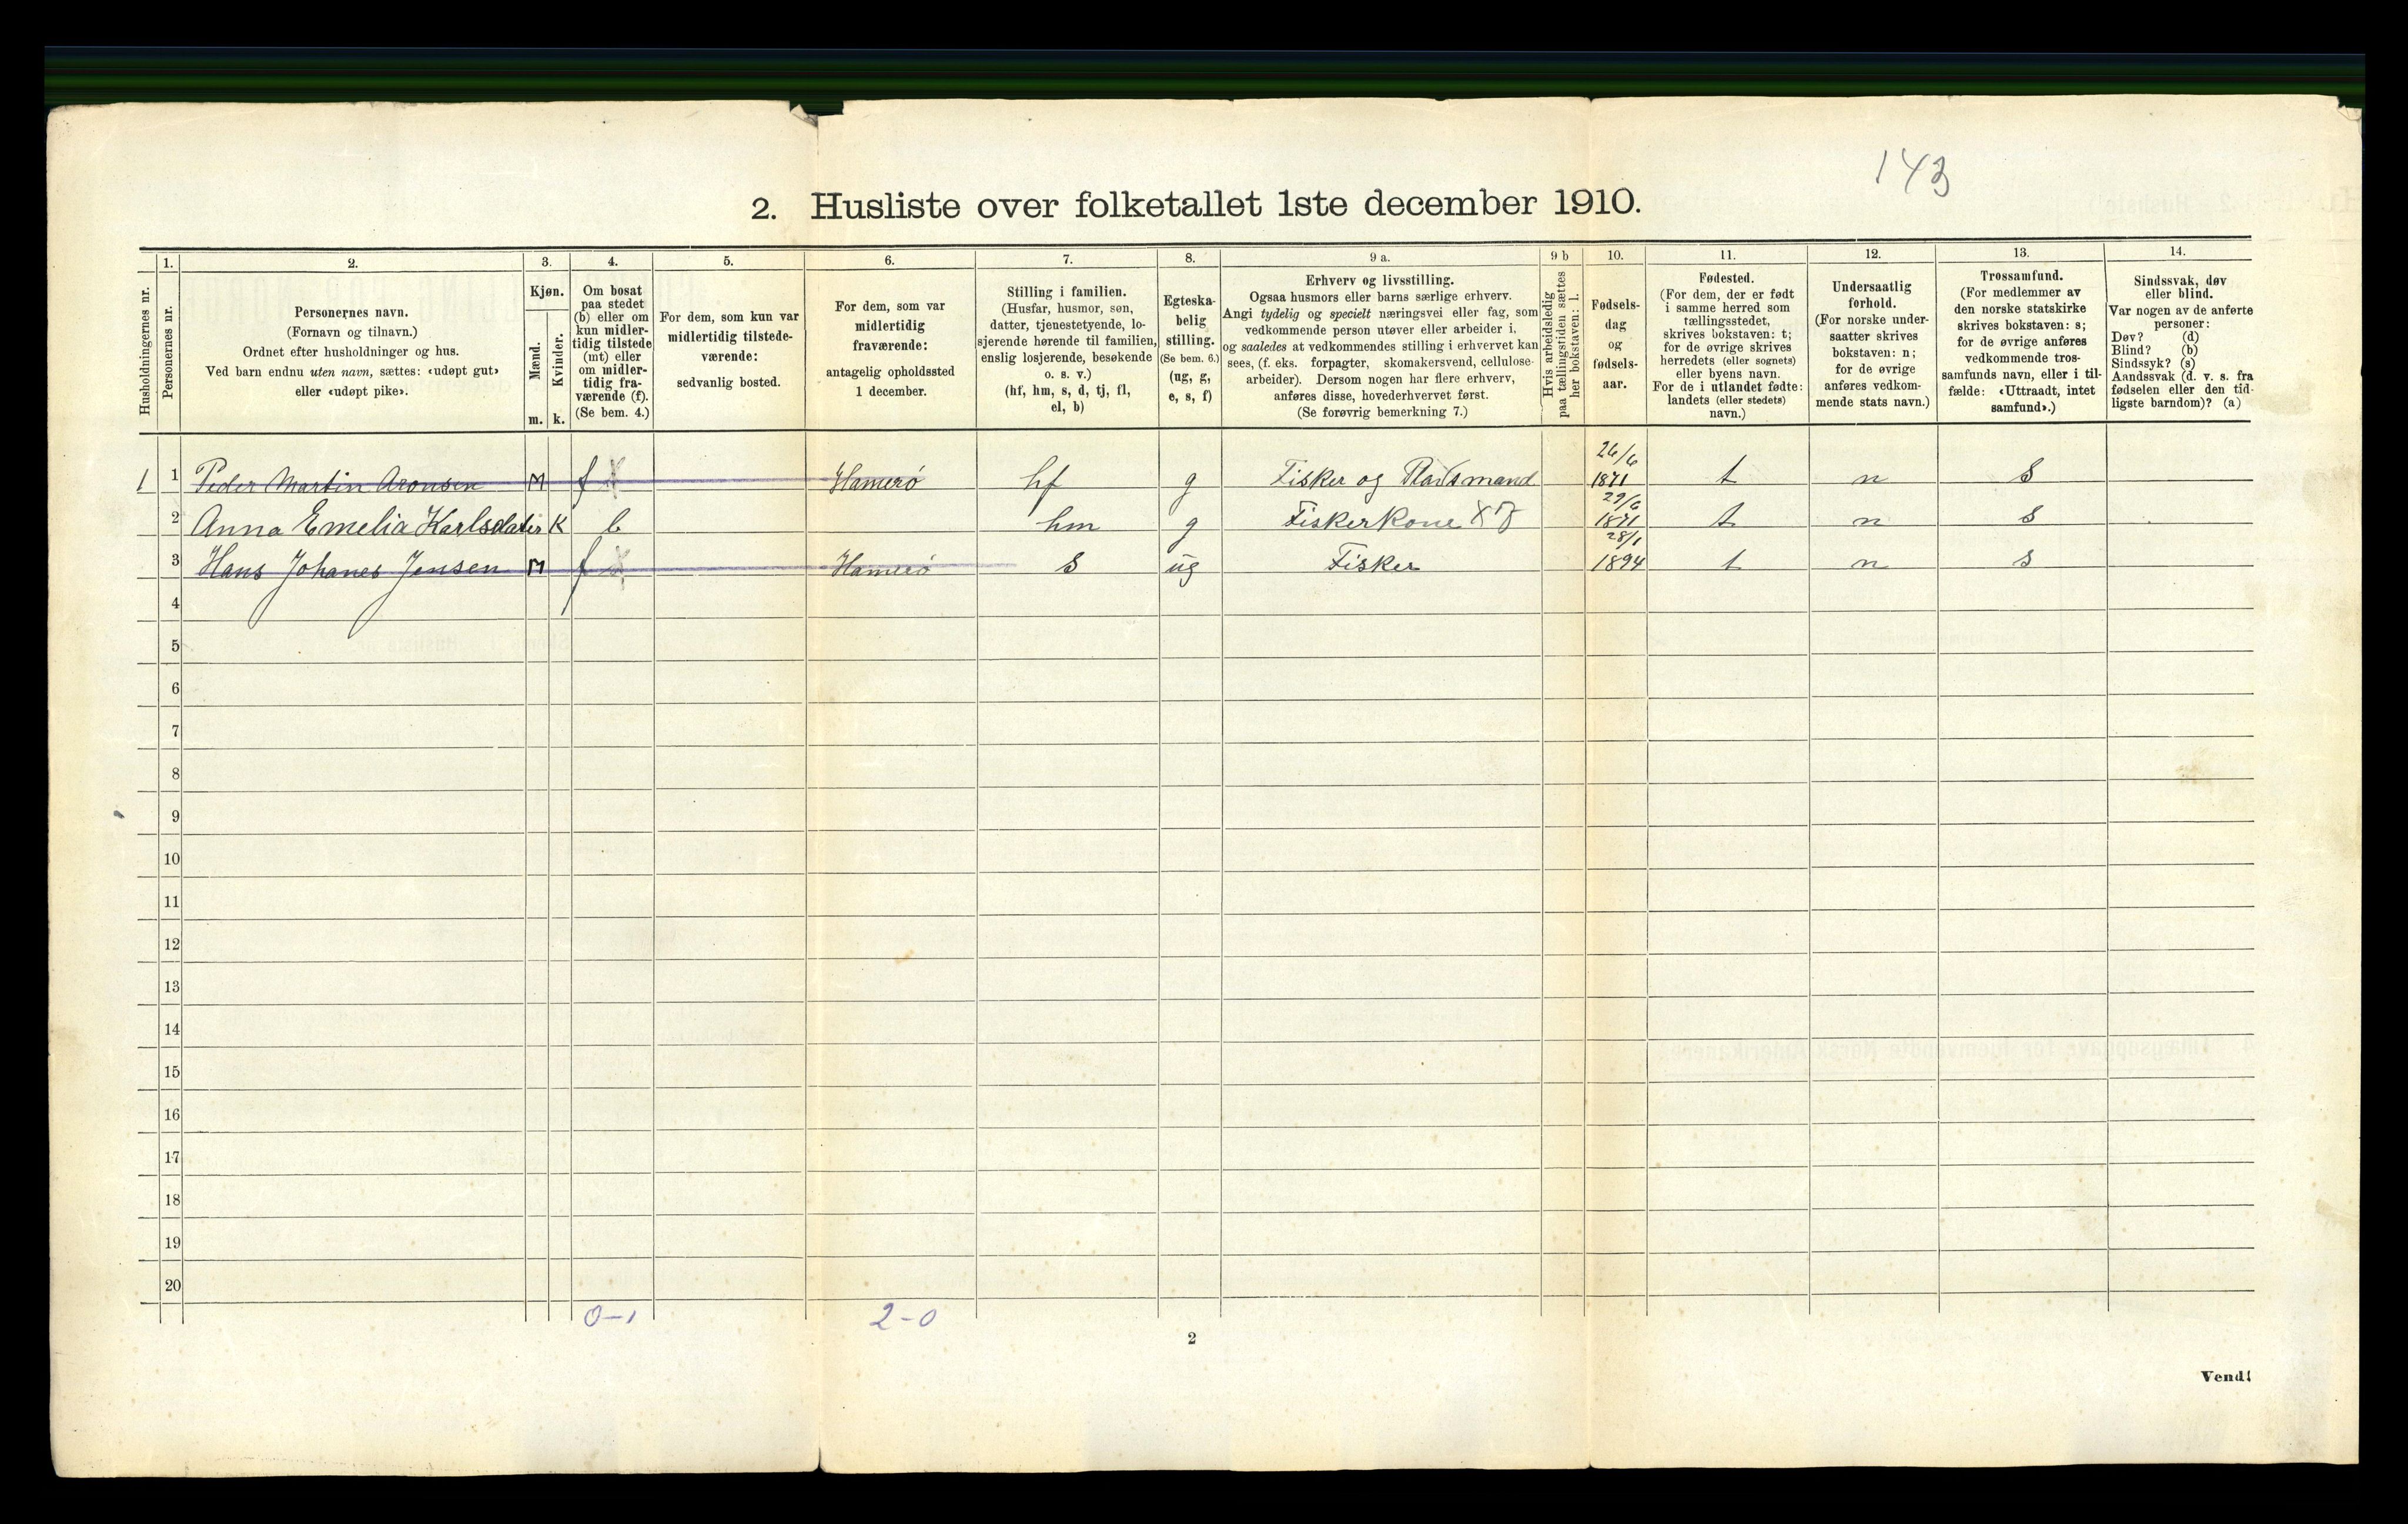 143
2. Husliste over folketallet 1ste december 1910.
Husholdningernes nr.
1.
Personernes nr.
2.
Personernes navn.
(Fornavn og tilnavn.)
Ordnet efter husholdninger og hus.
Ved barn endnu uten navn, sættes: «udøpt gut»
eller «udøpt pike».
3.
Kjøn.
Mænd.
Kvinder.
m. k.
4.
Om bosat
paa stedet
(b) eller om
kun midler-
tidig tilstede
(mt) eller
om midler-
tidig fra-
værende (f).
(Se bem. 4.)
5.
For dem, som kun var
midlertidig tilstede-
værende:
sedvanlig bosted.
6.
For dem, som var
midlertidig
fraværende:
antagelig opholdssted
1 december.
7.
Stilling i familien.
(Husfar, husmor, søn,
datter, tjenestetyende, lo-
sjerende hørende til familien,
enslig losjerende, besøkende
o. s. v.)
(hf, hm, s, d, tj, fl,
el, b)
8.
Egteska-
belig
stilling.
(Se bem. 6.)
(ug, g,
e, s, f)
9 a.
Erhverv og livsstilling.
Ogsaa husmors eller barns særlige erhverv.
Angi tydelig og specielt næringsvei eller fag, som
vedkommende person utøver eller arbeider i,
og saaledes at vedkommendes stilling i erhvervet kan
sees, (f. eks. forpagter, skomakersvend, cellulose-
arbeider). Dersom nogen har flere erhverv,
anføres disse, hovederhvervet først.
(Se forøvrig bemerkning 7.)
9 b
Hvis arbeidsledig
paa tællingstiden sættes
her bokstaven: l.
10.
Fødsels-
dag
og
fødsels-
aar.
11.
Fødested.
(For dem, der er født
i samme herred som
tællingsstedet,
skrives bokstaven: t;
for de øvrige skrives
herredets (eller sognets)
eller byens navn.
For de i utlandet fødte:
landets (eller stedets)
navn.)
12.
Undersaatlig
forhold.
(For norske under-
saatter skrives
bokstaven: n;
for de øvrige
anføres vedkom-
mende stats navn.)
13.
Trossamfund.
(For medlemmer av
den norske statskirke
skrives bokstaven: s;
for de øvrige anføres
vedkommende tros-
samfunds navn, eller i til-
fælde: «Uttraadt, intet
samfund».)
14.
Sindssvak, døv
eller blind.
Var nogen av de anførte
personer:
Døv? (d)
Blind? (b)
Sindssyk? (s)
Aandssvak (d. v. s. fra
fødselen eller den tid-
ligste barndom)? (a)
1 1 Peder Martin Aronsen M f Hamerø hf g Fisker og Pladsmand 26/6 1871 t n S
2 Anna Emelia Karlsdater K b hm g Fiskerkone 29/6 1871 t n S
3 Hans Johanes Jensen M f Hamerø S ug Fisker 28/1 1894 t n S
4
5
6
7
8
9
10
11
12
13
14
15
16
17
18
19
20
0-1 2-0
2
Vend!